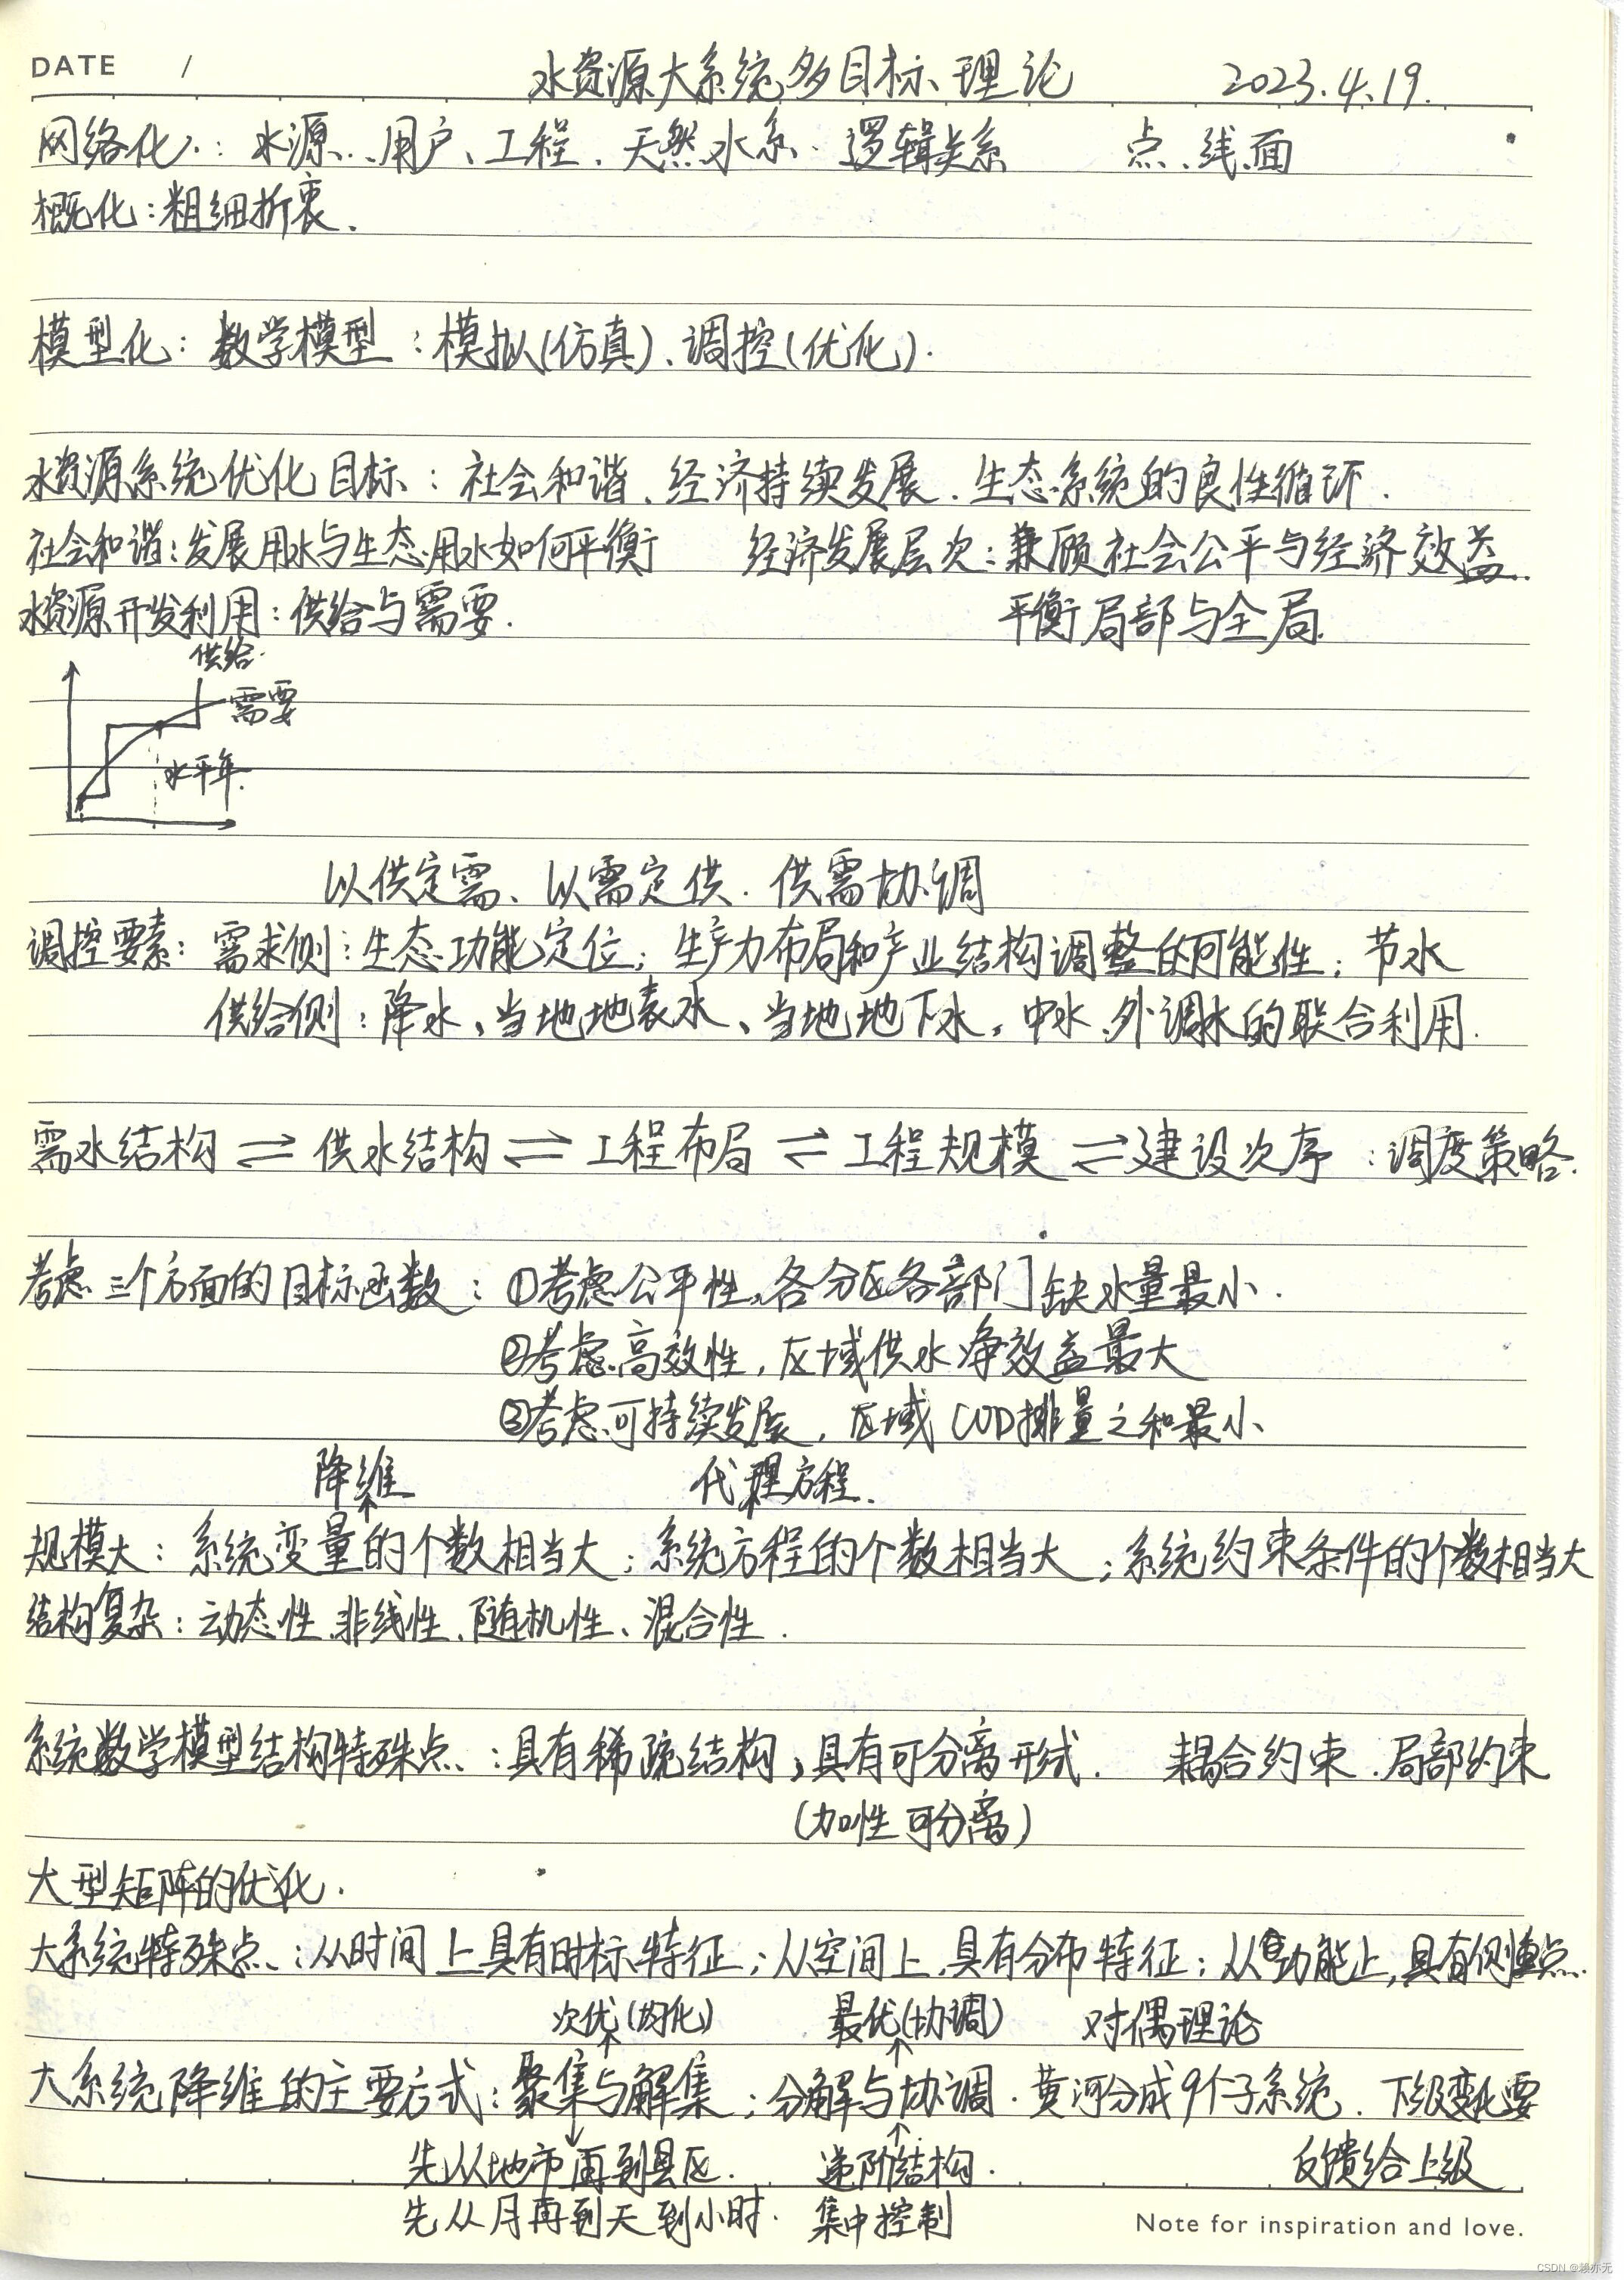 DATE /
水资源大系统多目标理论 2023.4.19.
网络化：水源、用户、工程、天然水系、逻辑关系 点、线、面
概化：粗细折衷.
模型化：数学模型：模拟(仿真)、调控(优化).
水资源系统优化目标：社会和谐、经济持续发展、生态系统的良性循环.
社会和谐：发展用水与生态用水如何平衡 经济发展层次：兼顾社会公平与经济效益.
水资源开发利用：供给与需要. 平衡局部与全局.
供给
需要
水平年.
以供定需、以需定供、供需协调
调控要素：需求侧：生态功能定位；生产力布局和产业结构调整的可能性；节水
供给侧：降水、当地地表水、当地地下水、中水、外调水的联合利用.
需水结构 ⇌ 供水结构 ⇌ 工程布局 ⇌ 工程规模 ⇌ 建设次序：调度策略.
考虑三个方面的目标函数：①考虑公平性,各分区各部门缺水量最小.
②考虑高效性,区域供水净效益最大
③考虑可持续发展,区域COD排量之和最小
降维 代理方程.
规模大：系统变量的个数相当大；系统方程的个数相当大；系统约束条件的个数相当大
结构复杂：动态性、非线性、随机性、混合性.
系统数学模型结构特殊点：具有稀疏结构,具有可分离形式. 耦合约束.局部约束
(加性可分离)
大型矩阵的优化.
大系统特殊点：从时间上具有时标特征；从空间上,具有分布特征；从功能上,具有侧重点.
次优(均化) 最优(协调) 对偶理论
大系统降维的主要方式：聚集与解集；分解与协调.黄河分成9个子系统. 下级变化要
先从地市再到县区. 递阶结构. 反馈给上级
先从月再到天到小时. 集中控制
Note for inspiration and love.
CSDN @赖亦无